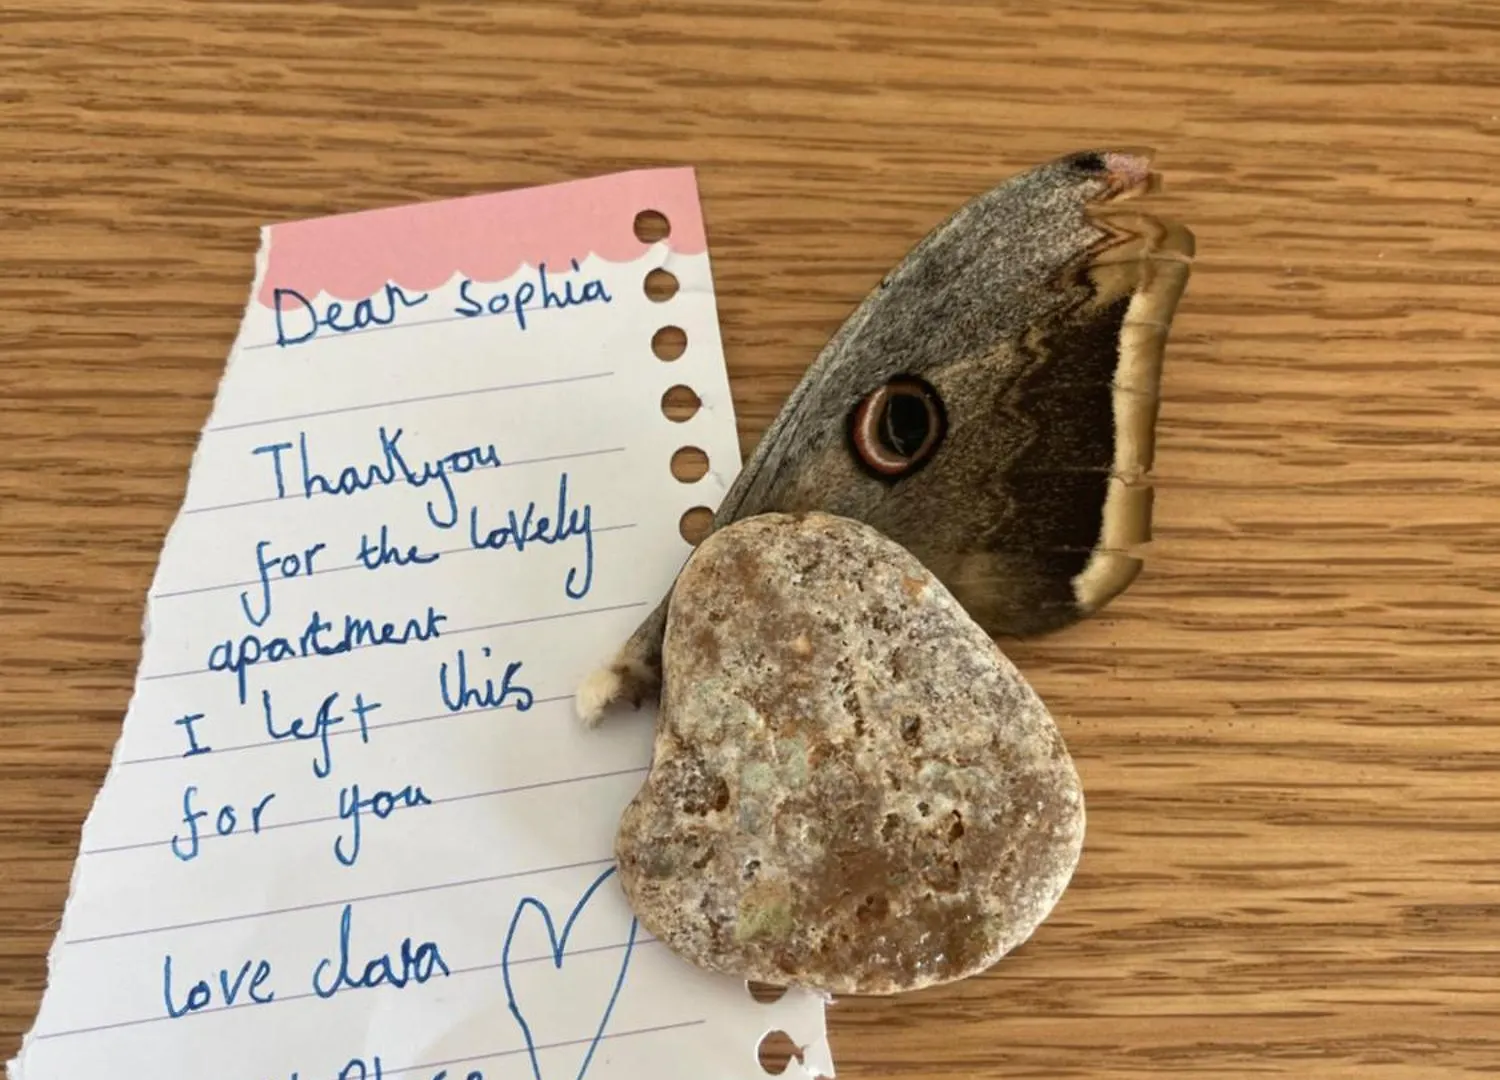 Dear Sophia
Thankyou
for the lovely
apartment
I left this
for you
Love clara